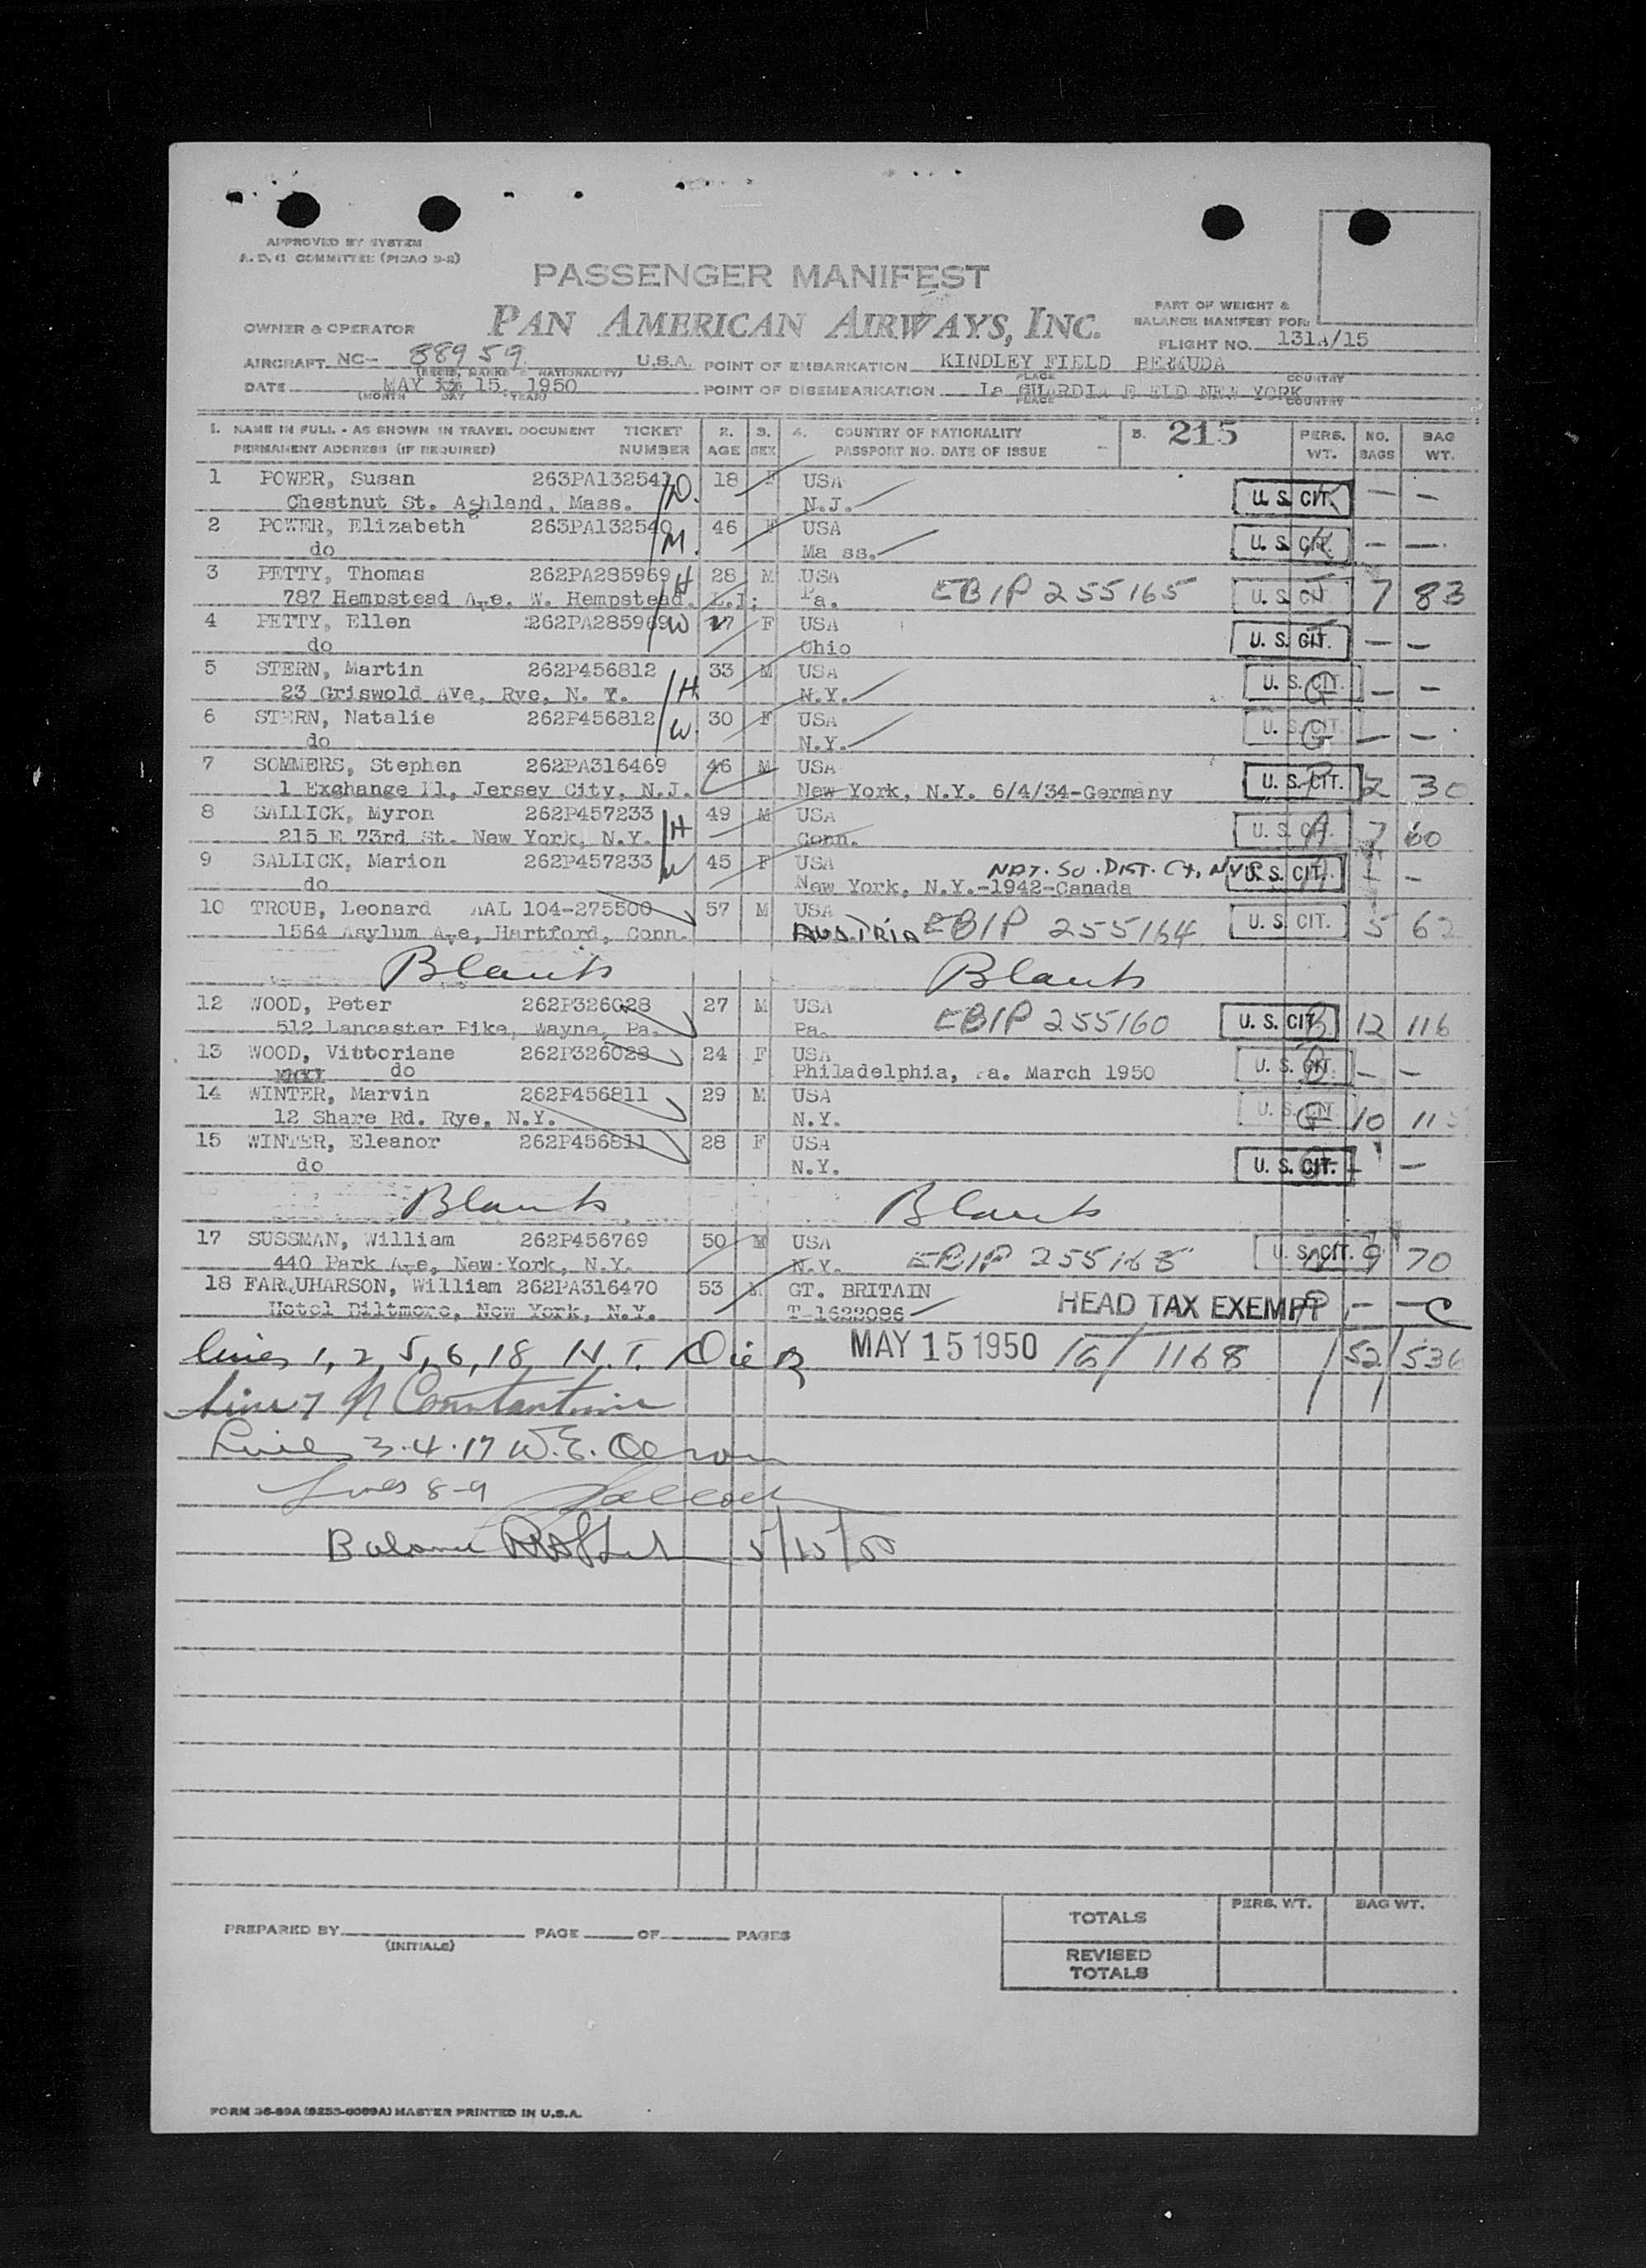 APPROVED BY SYSTEM
A. D. C. COMMITTEE (PICAO 9-2)
PASSENGER MANIFEST
PAN AMERICAN AIRWAYS, INC.
PART OF WEIGHT &
BALANCE MANIFEST FOR:
OWNER & OPERATOR
FLIGHT NO. 131A/15
AIRCRAFT NC- 88959 U.S.A. POINT OF EMBARKATION KINDLEY FIELD BERMUDA
(REGIS. MARKS & NATIONALITY) PLACE COUNTRY
DATE MAY 15, 1950 POINT OF DISEMBARKATION La GUARDIA FIELD NEW YORK
(MONTH DAY YEAR) PLACE COUNTRY
1. NAME IN FULL - AS SHOWN IN TRAVEL DOCUMENT TICKET 2. 3. 4. COUNTRY OF NATIONALITY 5. 215 PERS. NO. BAG
PERMANENT ADDRESS (IF REQUIRED) NUMBER AGE SEX PASSPORT NO. DATE OF ISSUE WT. BAGS WT.
1 POWER, Susan 263PA132541 D. 18 F USA
Chestnut St. Ashland, Mass. N.J. U. S. CIT. — —
2 POWER, Elizabeth 263PA132540 M. 46 F USA
do Ma ss. U. S. CIT. — —
3 PETTY, Thomas 262PA285969 H 28 M USA EBIP 255165
787 Hempstead Ave. W. Hempstead. L.I; Pa. U. S. CIT. 7 83
4 PETTY, Ellen 262PA285969 W 27 F USA
do Ohio U. S. CIT. — —
5 STERN, Martin 262P456812 33 M USA
23 Griswold Ave, Rye, N. Y. H N.Y. U. S. CIT. — —
6 STERN, Natalie 262P456812 30 F USA
do W. N.Y. U. S. CIT. — —
7 SOMMERS, Stephen 262PA316469 46 M USA
1 Exchange Pl, Jersey City, N.J. New York, N.Y. 6/4/34-Germany U. S. CIT. 2 30
8 SALLICK, Myron 262P457233 49 M USA
215 E 73rd St. New York, N.Y. H Conn. U. S. CIT. 7 60
9 SALLICK, Marion 262P457233 W 45 F USA NAT. SO. DIST. CT, NYS. U. S. CIT. — —
do New York, N.Y.-1942-Canada
10 TROUB, Leonard AAL 104-275500 57 M USA
1564 Asylum Ave, Hartford, Conn. AUSTRIA EBIP 255164 U. S. CIT. 5 62
Blank Blank
12 WOOD, Peter 262P326028 27 M USA
512 Lancaster Pike, Wayne, Pa. Pa. EBIP 255160 U. S. CIT. 12 116
13 WOOD, Vittoriane 262P326028 24 F USA
do Philadelphia, Pa. March 1950 U. S. CIT. — —
14 WINTER, Marvin 262P456811 29 M USA
12 Share Rd. Rye, N.Y. N.Y. U. S. CIT. 10 115
15 WINTER, Eleanor 262P456811 28 F USA
do N.Y. U. S. CIT. — —
Blank Blank
17 SUSSMAN, William 262P456769 50 M USA
440 Park Ave, New York, N.Y. N.Y. EBIP U. S. CIT. 9 70
18 FARQUHARSON, William 262PA316470 53 M GT. BRITAIN
Hotel Biltmore, New York, N.Y. T-1622086 HEAD TAX EXEMPT — — C
Lines 1, 2, 5, 6, 18 MAY 15 1950 16/ 1168 52 536
Line 7 N Constantine
Lines 3-4-17 W.E.
Lines 8-9
Balance 5/15/50
PERS. WT. BAG WT.
TOTALS
PREPARED BY PAGE OF PAGES
(INITIALS)
REVISED
TOTALS
FORM 36-89A (8253-6089A) MASTER PRINTED IN U.S.A.